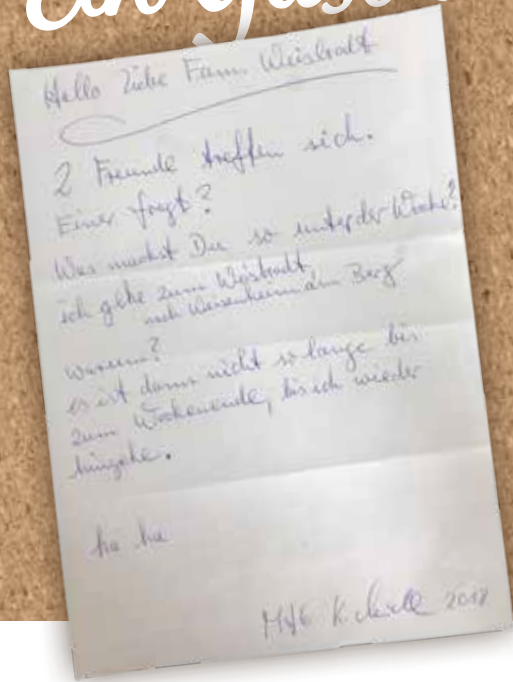 Ein
Hallo liebe Fam. Weisbrodt
2 Freunde treffen sich.
Einer fragt?
Was machst Du so unter der Woche?
ich gehe zum Weisbrodt
nach Weisenheim am Berg
warum?
es ist dann nicht so lange bis
zum Wochenende, bis ich wieder
hingehe.
ha ha
MfG K. 2018